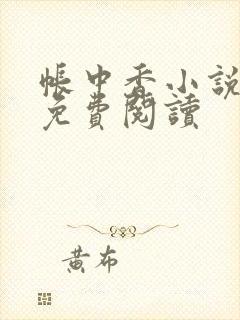 帳中香小說
免費閱讀
黃布